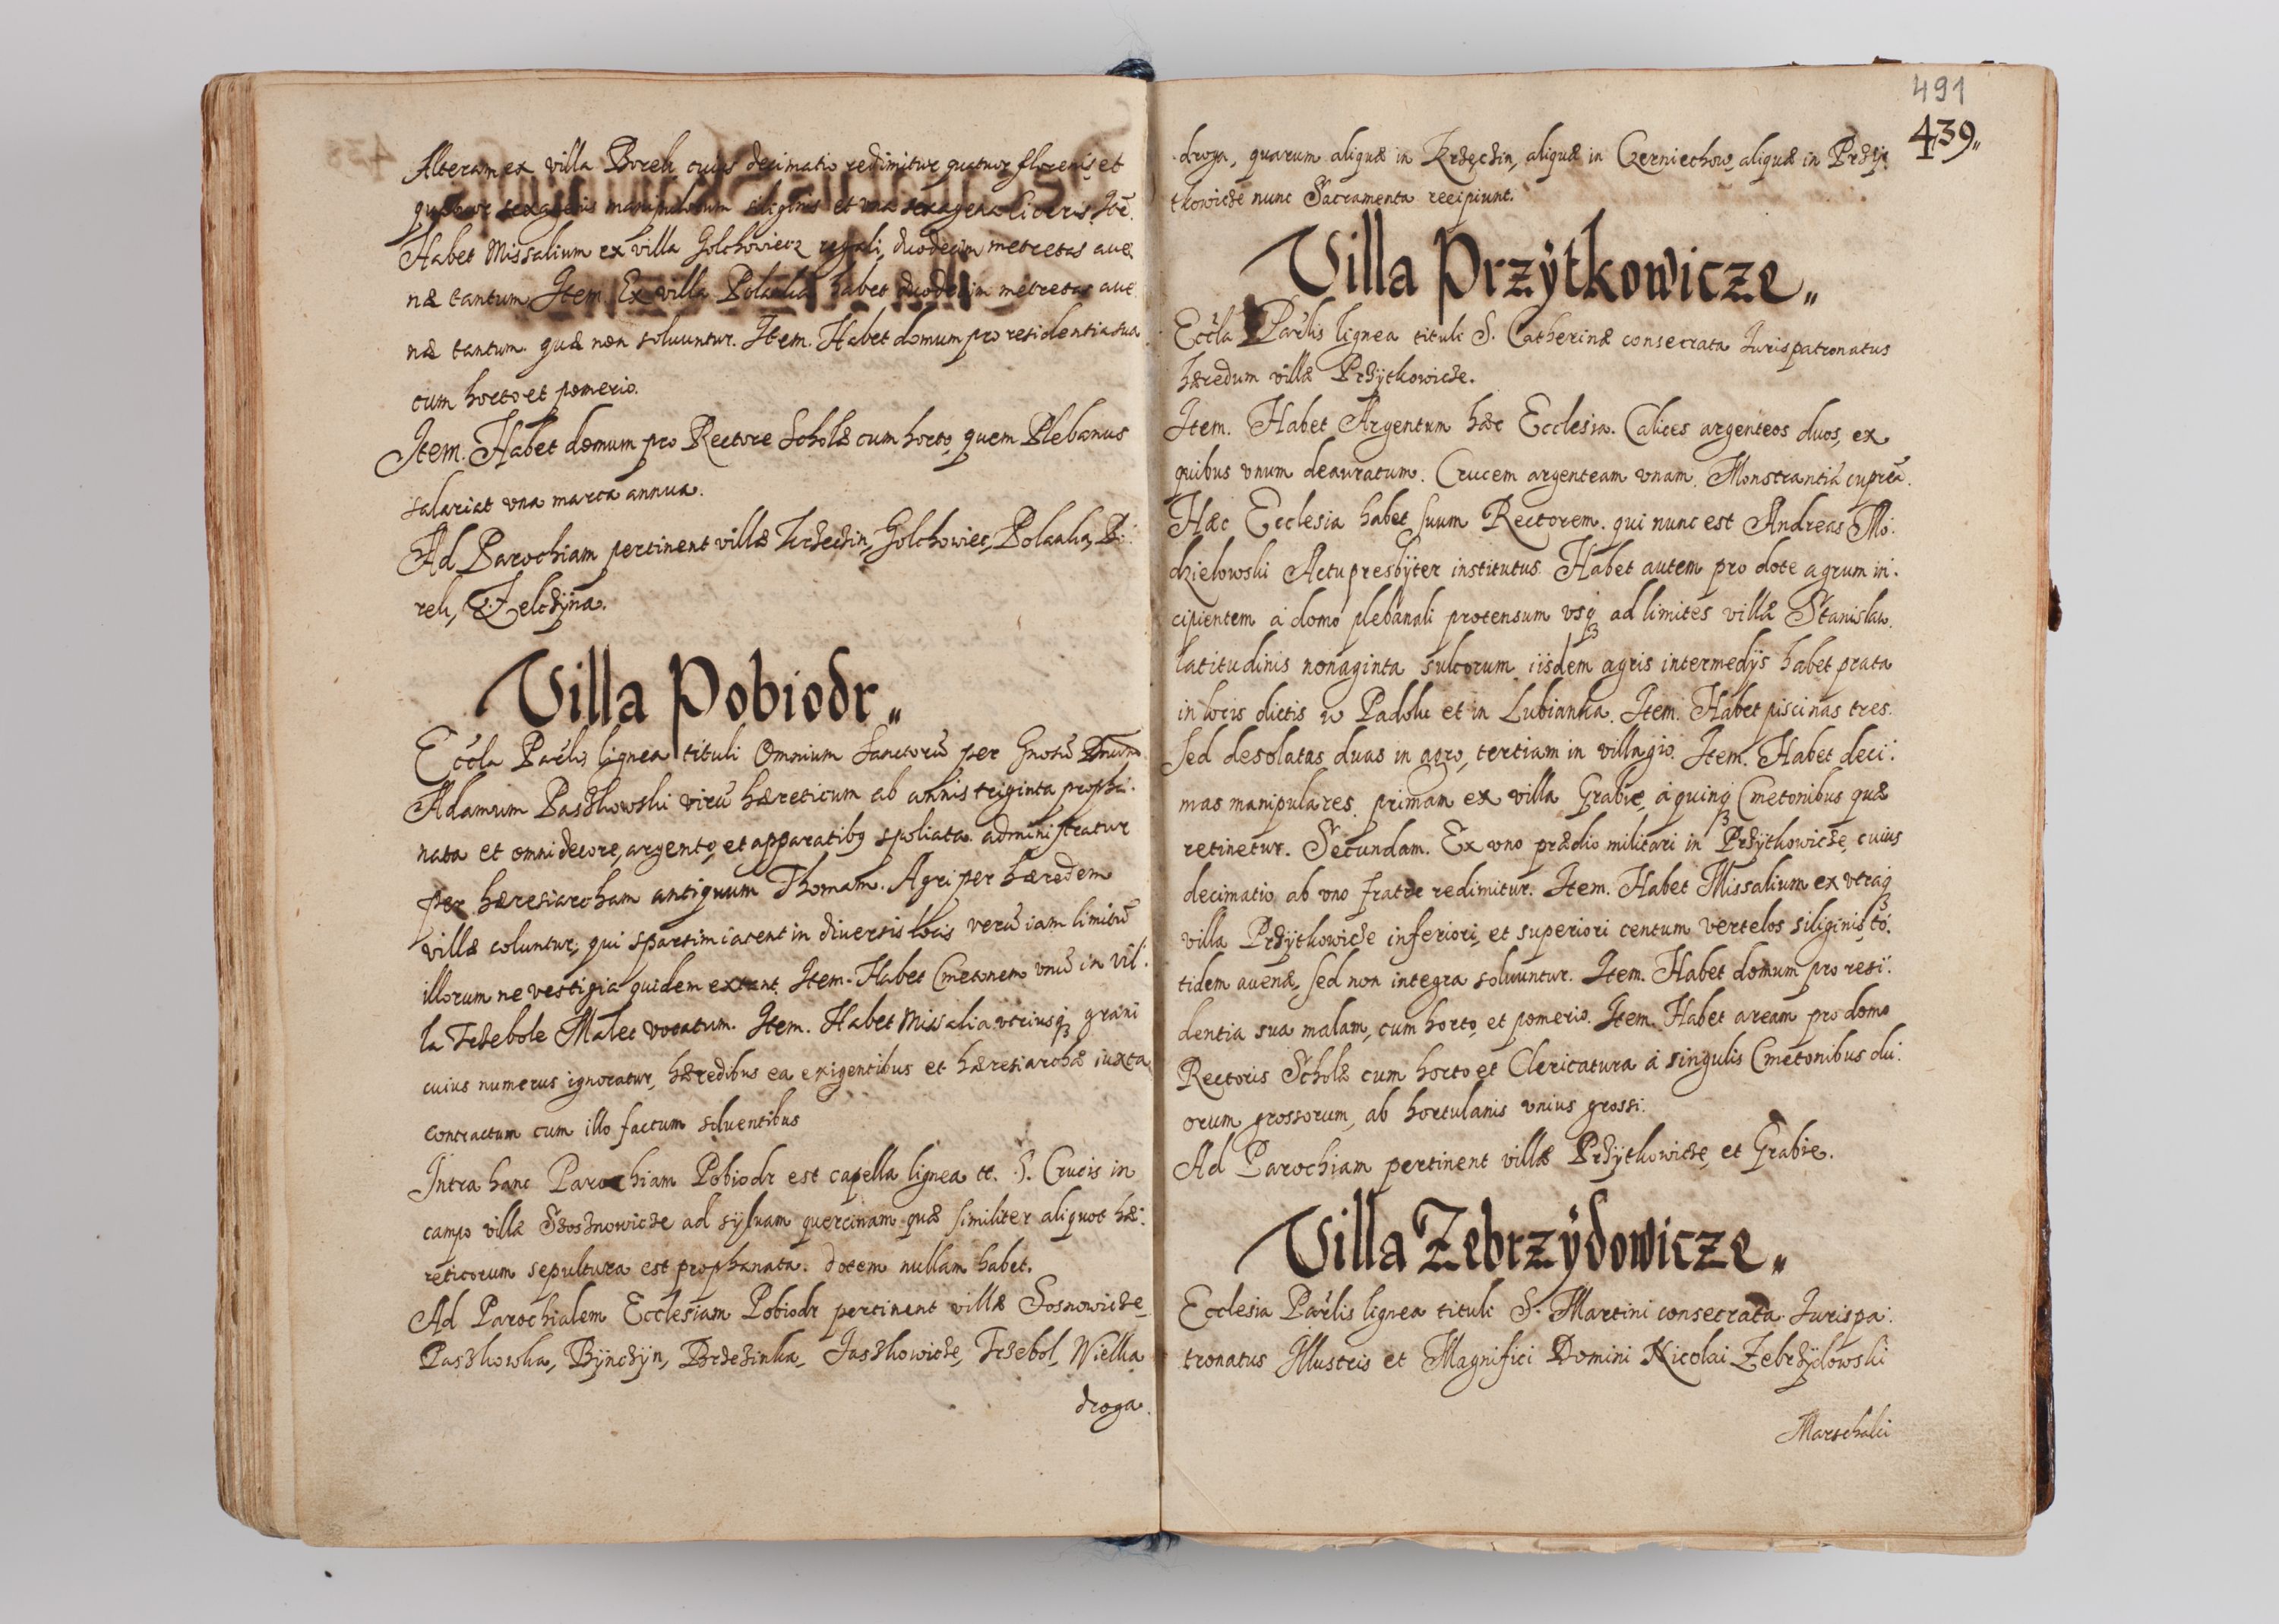 Alteram ex villa Borek cuius decimatio redimitur quatuor florenis et
quatuor sexagenis manipulorum siliginis et una sexagena Ciceris. Itē.
Habet Missalium ex villa Golchowiecz regali, duodecim metretas aue
næ tantum. Item. Ex villa Polanka habet duodecim metretas aue
næ tantum. quæ non soluuntur. Item. Habet domum pro residentia sua
cum horto et pomerio.
Item. Habet domum pro Rectore Scholæ cum horto, quem Plebanus
salariat vna marca annua.
Ad Parochiam pertinent villæ Krzeczin, Golchowiec, Polanka, Bo:
rek, Zelczÿna.
Villa Pobiodr„
Eccła Pařlis lignea tituli Omnium Sanctorū per Gnosū Dnum
Adamum Paszkowski virū hæreticum ab annis triginta propha:
nata et omni decore, argento, et apparatibꝫ spoliata. administratur
per hæresiarcham antiquum Thomam. Agri per hæredem
villæ coluntur, qui sparsim iacent in diuersis locis verū iam limitū
illorum ne vestigia quidem extant. Item. Habet Cmetonem vnū in vil:
la Trzebole Malec vocatum. Item. Habet Missalia vtriusqꝫ grani
cuius numerus ignoratur, hæredibus ea exigentibus et hæresiarchæ iuxta
contractum cum illo factum soluentibus
Intra hanc Parochiam Pobiodr est capella lignea tt. S. Crucis in
campo villæ Szosznowicze ad syluam quercinam quæ similiter aliquot hæ:
reticorum sepultura est prophanata. dotem nullam habet.
Ad Parochialem Ecclesiam Pobiodr pertinent villæ Sosnowicze
Paszkowka, Bÿnczÿn, Brzezinka, Jaszkowicze, Trzebol, Wielka
droga.
491
439„
droga, quarum aliquæ in Krzęczin, aliquæ in Czerniechow, aliquæ in Przÿ
tkowicze nunc Sacramenta recipiunt.
Villa Przÿtkowicze„
Eccła Pařlis lignea tituli S. Catherinæ consecrata Iurispatronatus
hæredum villæ Przÿtkowicze.
Item. Habet Argentum hæc Ecclesia. Calices argenteos duos, ex
quibus vnum deauratum. Crucem argenteam vnam. Monstrantiā cupreā.
Hæc Ecclesia habet suum Rectorem. qui nunc est Andreas Mo:
dzielowski Actu presbÿter institutus. Habet autem pro dote agrum in:
cipientem à domo plebanali protensum vsqꝫ ad limites villæ Stanislaw.
latitudinis nonaginta sulcorum iisdem agris intermedÿs habet prata
in locis dictis w Padolu et in Lubianka. Item. Habet piscinas tres.
Sed desolatas duas in agro, tertiam in villagio. Item. Habet deci:
mas manipulares. primam ex villa Grabie, à quinqꝫ Cmetonibus quæ
retinetur. Secundam. Ex vno prædio militari in Przÿtkowicze, cuius
decimatio ab vno fratre redimitur. Item. Habet Missalium ex vtraqꝫ
villa Przÿtkowicze inferiori, et superiori centum vertelos siliginis, tó:
tidem auenæ, sed non integra soluuntur. Item. Habet domum pro resi:
dentia sua malam, cum horto, et pomerio. Item. Habet aream pro domo
Rectoris Scholæ cum horto et Clericatura à singulis Cmetonibus du:
orum grossorum, ab hortulanis vnius grossi.
Ad Parochiam pertinent villæ Przÿtkowicze, et Grabie.
Villa Zebrzÿdowicze„
Ecclesia Pařlis lignea tituli S. Martini consecrata Iurispa:
tronatus Illustris et Magnifici Domini Nicolai Zebrzÿdowski
Marschalci